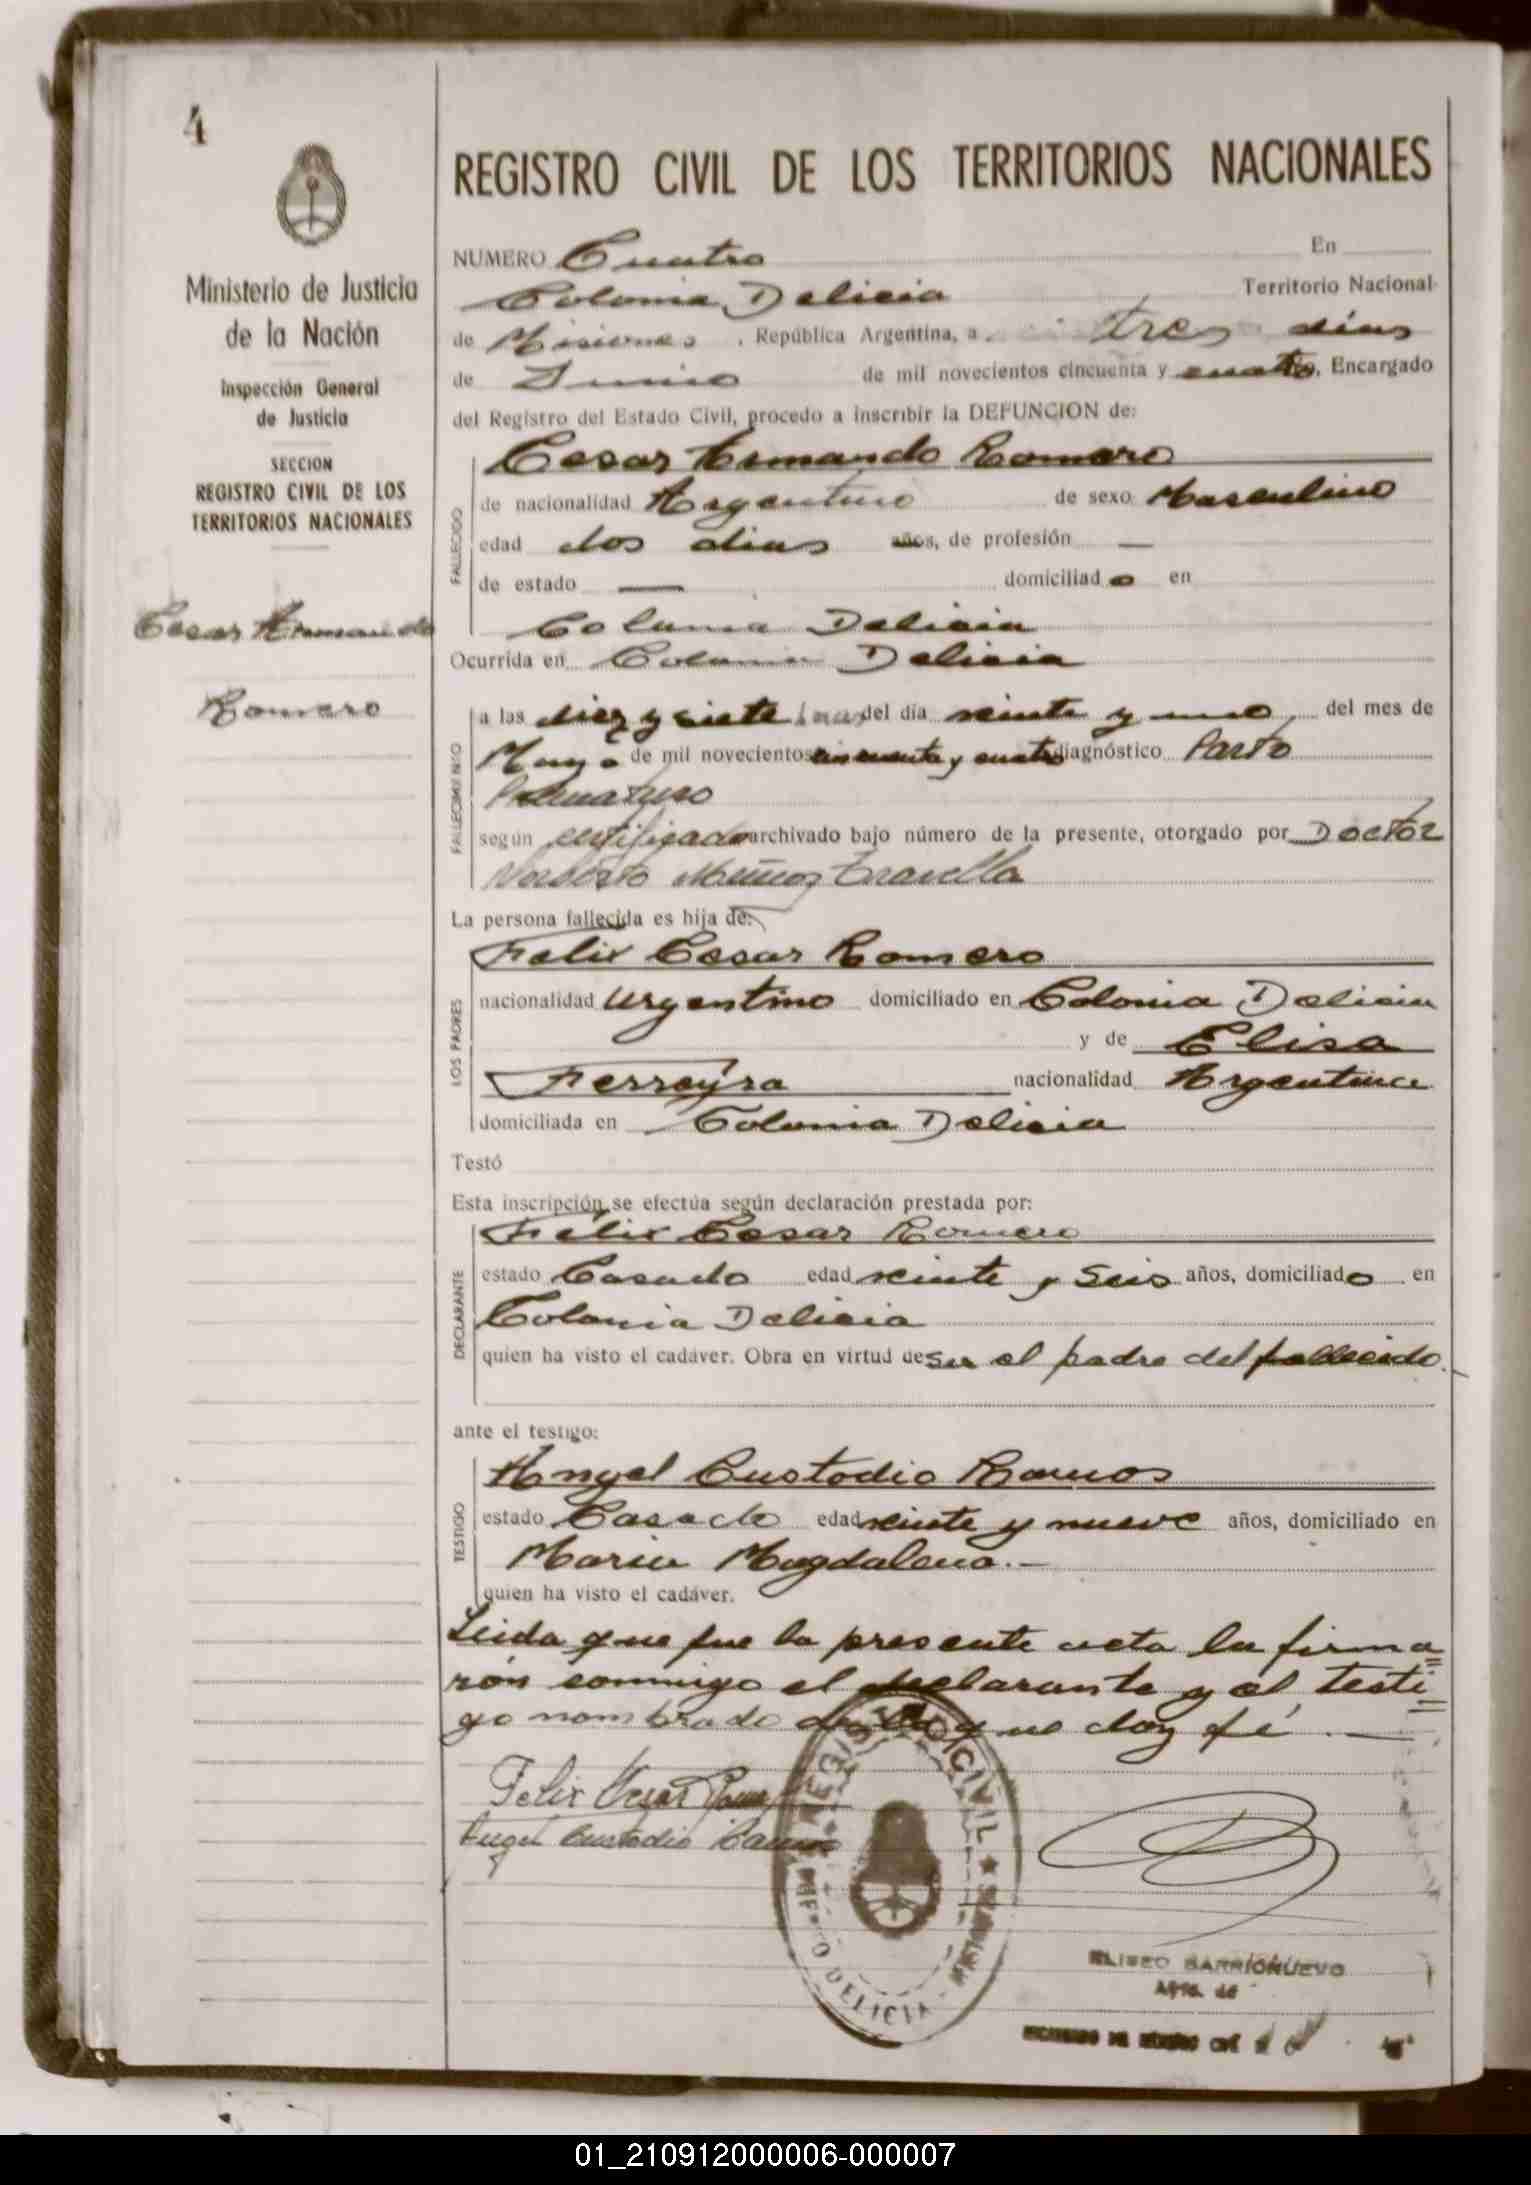 4
Ministerio de Justicia
de la Nación
Inspección General
de Justicia
SECCION
REGISTRO CIVIL DE LOS
TERRITORIOS NACIONALES
Cesar Armando
Romero
REGISTRO CIVIL DE LOS TERRITORIOS NACIONALES
NUMERO Cuatro En
Colonia Delicia Territorio Nacional
de Misiones, República Argentina, a tres días
de Junio de mil novecientos cincuenta y cuatro, Encargado
del Registro del Estado Civil, procedo a inscribir la DEFUNCION de:
FALLECIDO
Cesar Armando Romero
de nacionalidad Argentino de sexo Masculino
edad dos dias años, de profesión —
de estado — domiciliado en
Colonia Delicia
Ocurrida en Colonia Delicia
FALLECIMIENTO
a las diez y siete horas del día veinte y uno, del mes de
Mayo de mil novecientos cincuenta y cuatro diagnóstico Parto
Prematuro
según certificado archivado bajo número de la presente, otorgado por Doctor
Norberto Muñoz
La persona fallecida es hija de:
LOS PADRES
Felix Cesar Romero
nacionalidad argentino domiciliado en Colonia Delicia
y de Elisa
Ferreyra nacionalidad Argentina
domiciliada en Colonia Delicia
Testó
Esta inscripción se efectúa según declaración prestada por:
DECLARANTE
Félix Cesar Romero
estado Casado edad veinte y seis años, domiciliado en
Colonia Delicia
quien ha visto el cadáver. Obra en virtud de ser el padre del fallecido.
ante el testigo:
TESTIGO
Angel Custodio Ramos
estado Casado edad veinte y nueve años, domiciliado en
Maria Magdalena.—
quien ha visto el cadáver.
Leida que fue la presente acta la firma=
rón conmigo el declarante y el testi=
go nombrado de lo que doy fé.—
Felix Cesar Romero
Angel Custodio Ramos
REGISTRO CIVIL ★ MISIONES
DELICIA
ELISEO BARRIONUEVO
ENCARGADO DEL REGISTRO CIVIL
01_210912000006-000007